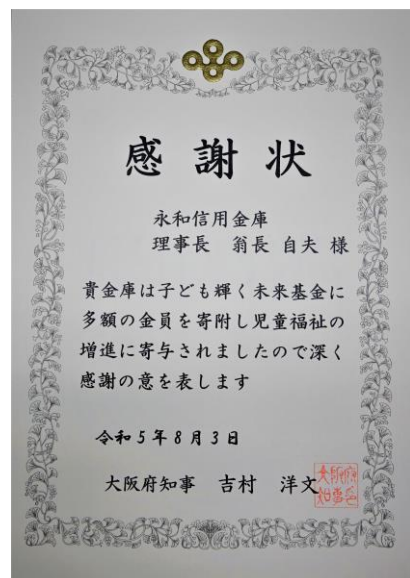 感謝状
永和信用金庫
理事長 翁長 自夫 様
貴金庫は子ども輝く未来基金に
多額の金員を寄附し児童福祉の
増進に寄与されましたので深く
感謝の意を表します
令和5年8月3日
大阪府知事 吉村 洋文